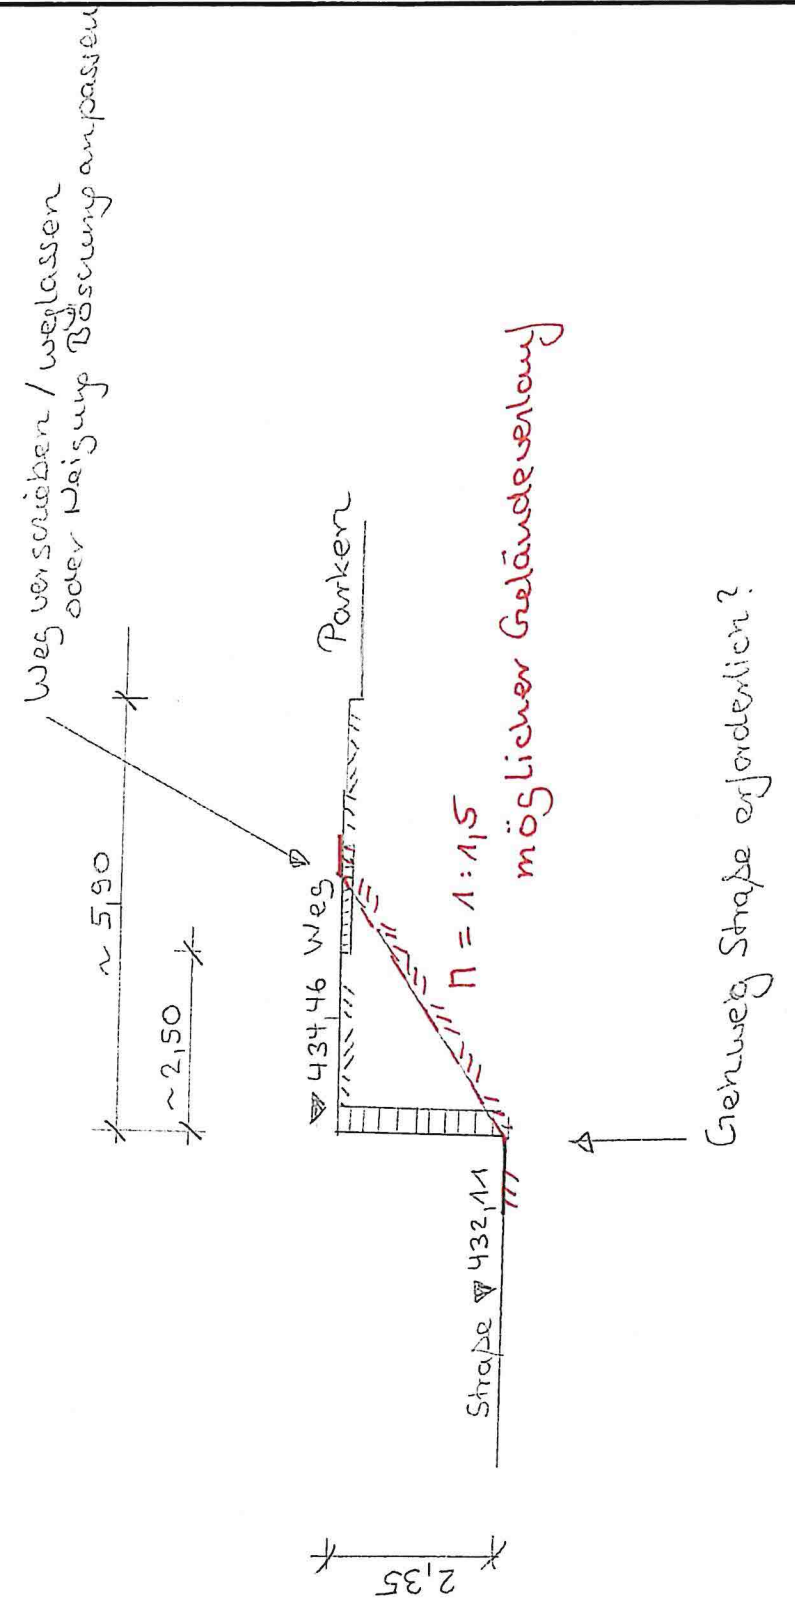 Weg verschieben / weglassen
oder Neigung Böschung anpassen
~ 5,90
~ 2,50
434,46 Weg
Parken
n = 1:1,5
möglicher Geländeverlauf
Straße 432,11
2,35
Gehweg Straße erforderlich?